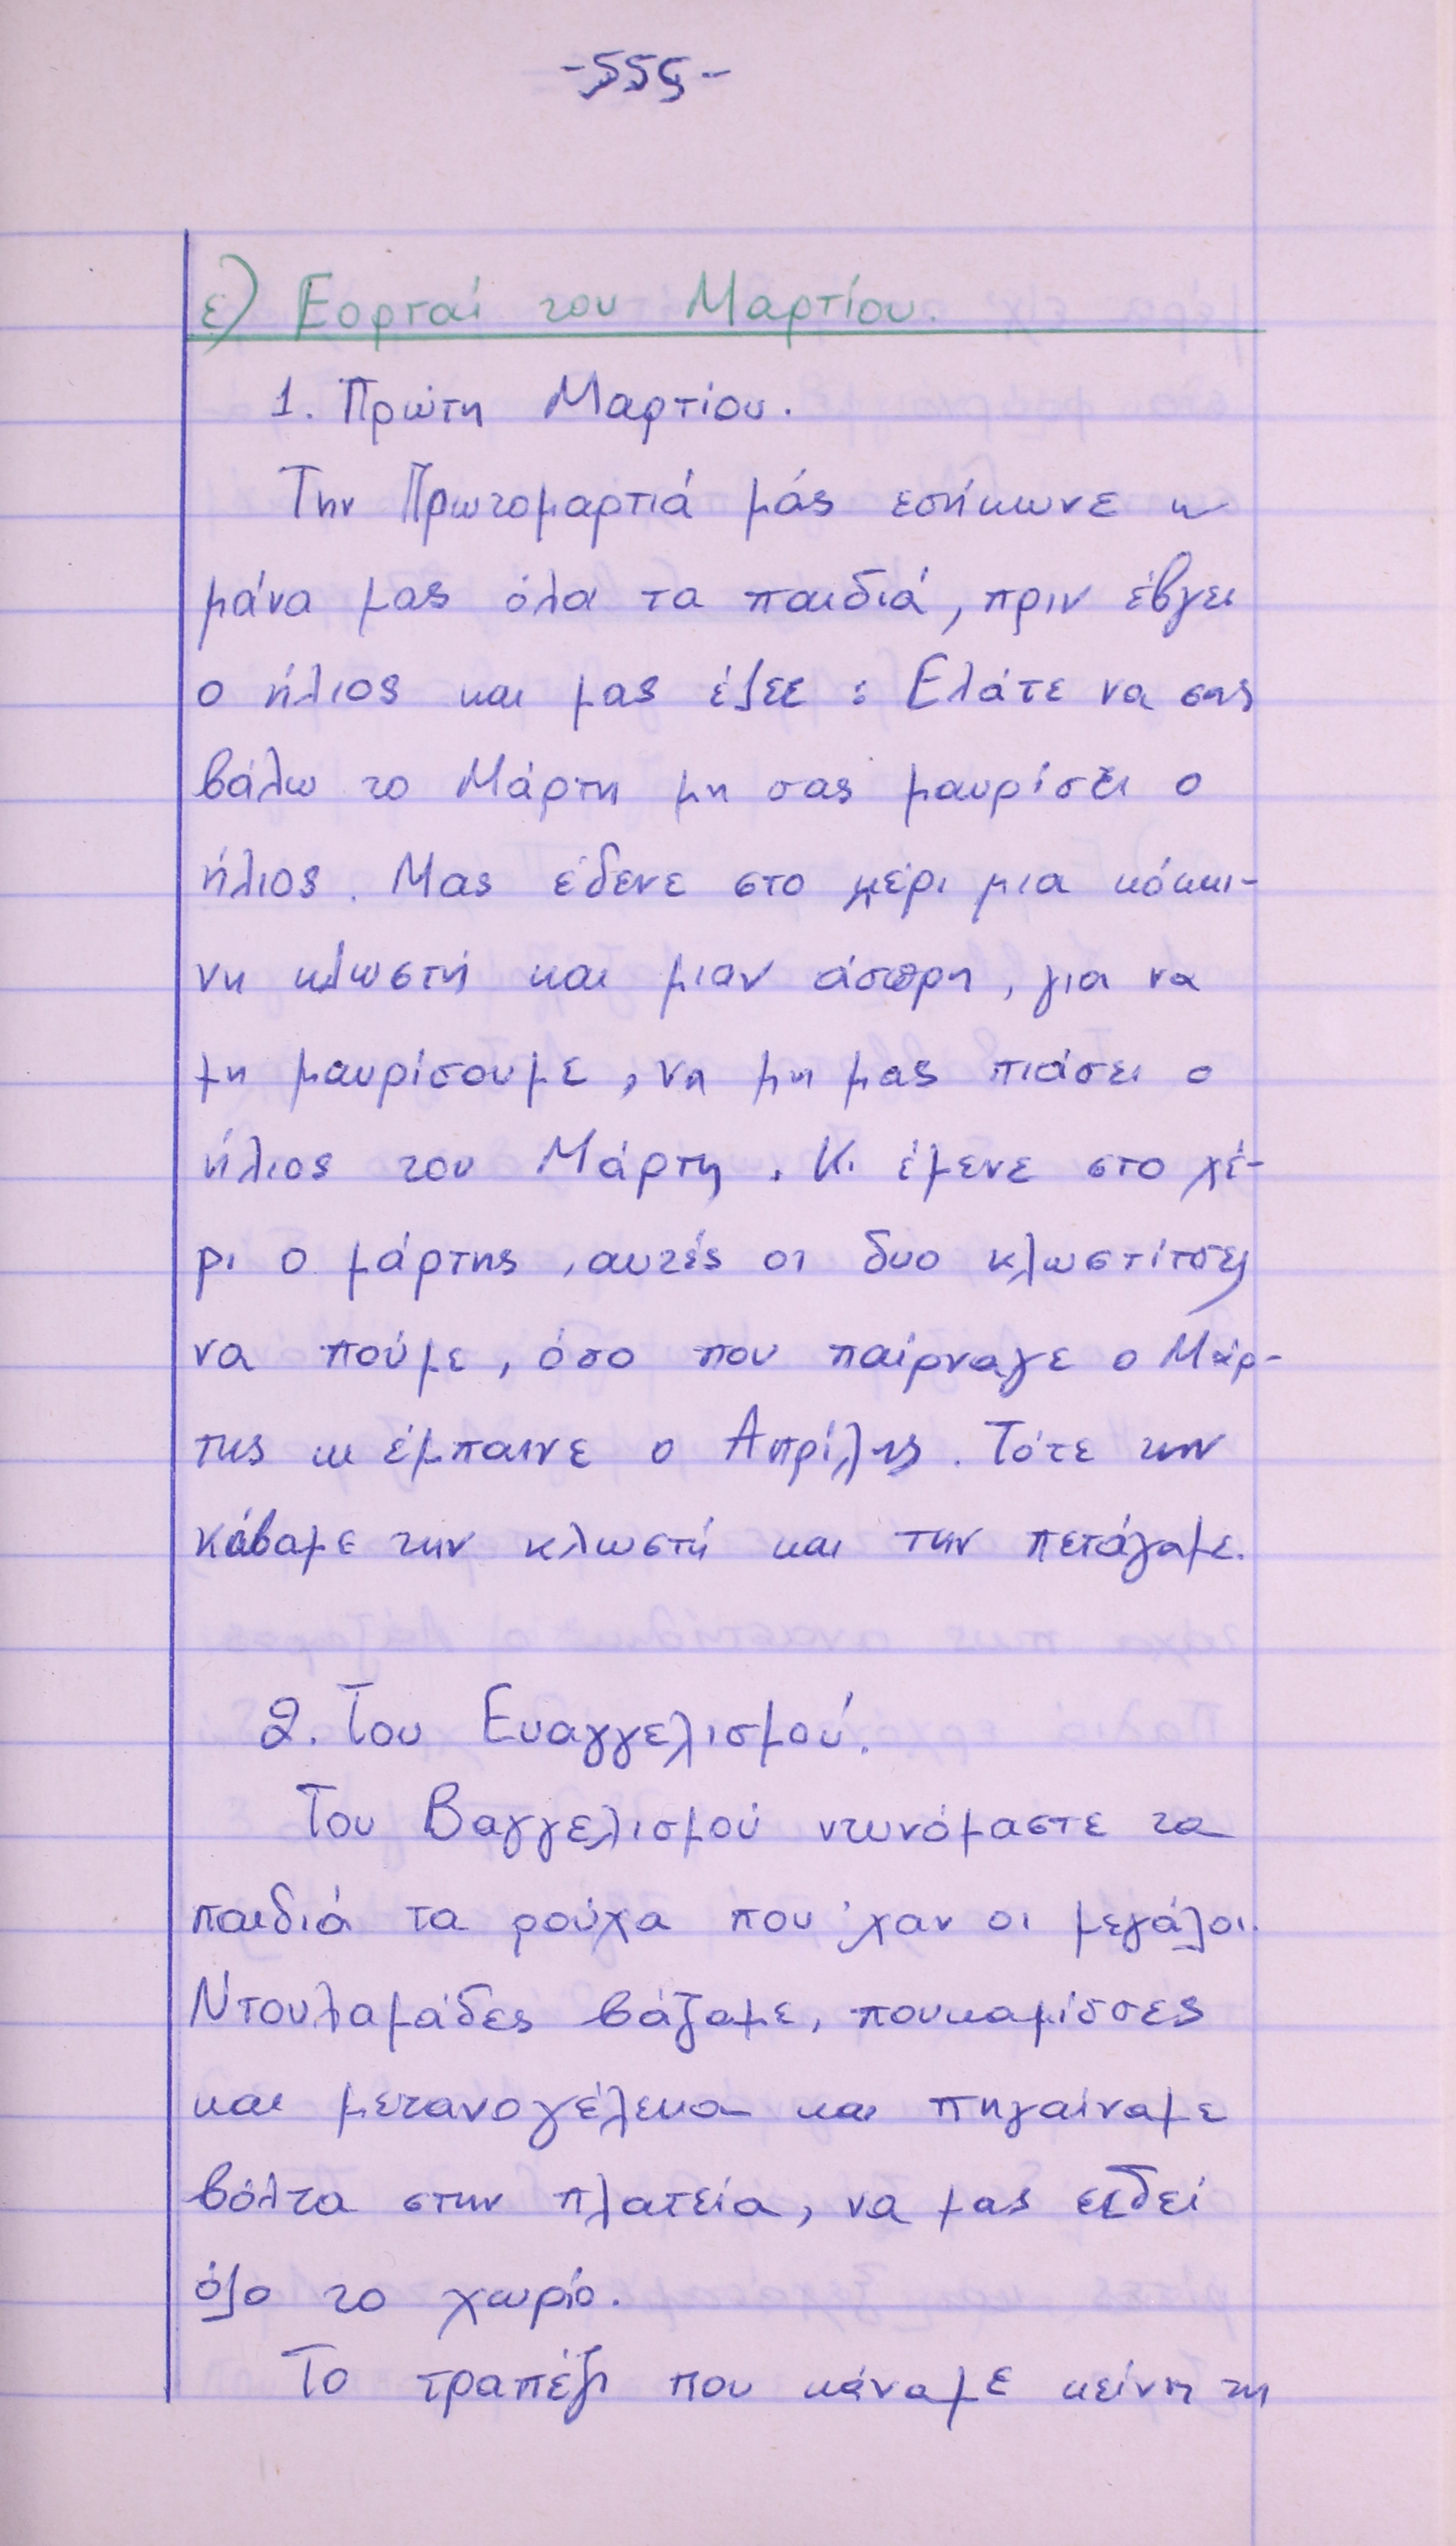 -555-
ε) Εορταί του Μαρτίου.
1. Πρώτη Μαρτίου.
Την Πρωτομαρτιά μάς εσήκωνε η
μάνα μας όλα τα παιδιά, πριν έβγει
ο ήλιος και μας έλεε : Ελάτε να σας
βάλω το Μάρτη μη σας μαυρίσει ο
ήλιος. Μας έδενε στο χέρι μια κόκκι-
νη κλωστή και μιαν άσπρη, για να
μη μαυρίσουμε, να μη μας πιάσει ο
ήλιος του Μάρτη. Κι έμενε στο χέ-
ρι ο μάρτης, αυτές οι δυο κλωστίτσες
να πούμε, όσο που παίρναγε ο Μάρ-
της κι έμπαινε ο Απρίλης. Τότε την
κόβαμε την κλωστή και την πετάγαμε.
2. Του Ευαγγελισμού.
Του Βαγγελισμού ντυνόμαστε τα
παιδιά τα ρούχα που 'χαν οι μεγάλοι.
Ντουλαμάδες βάζαμε, πουκαμίσσες
και μετανογέλεκα και πηγαίναμε
βόλτα στην πλατεία, να μας εδεί
όλο το χωριό.
Το τραπέζι που κάναμε κείνη τη